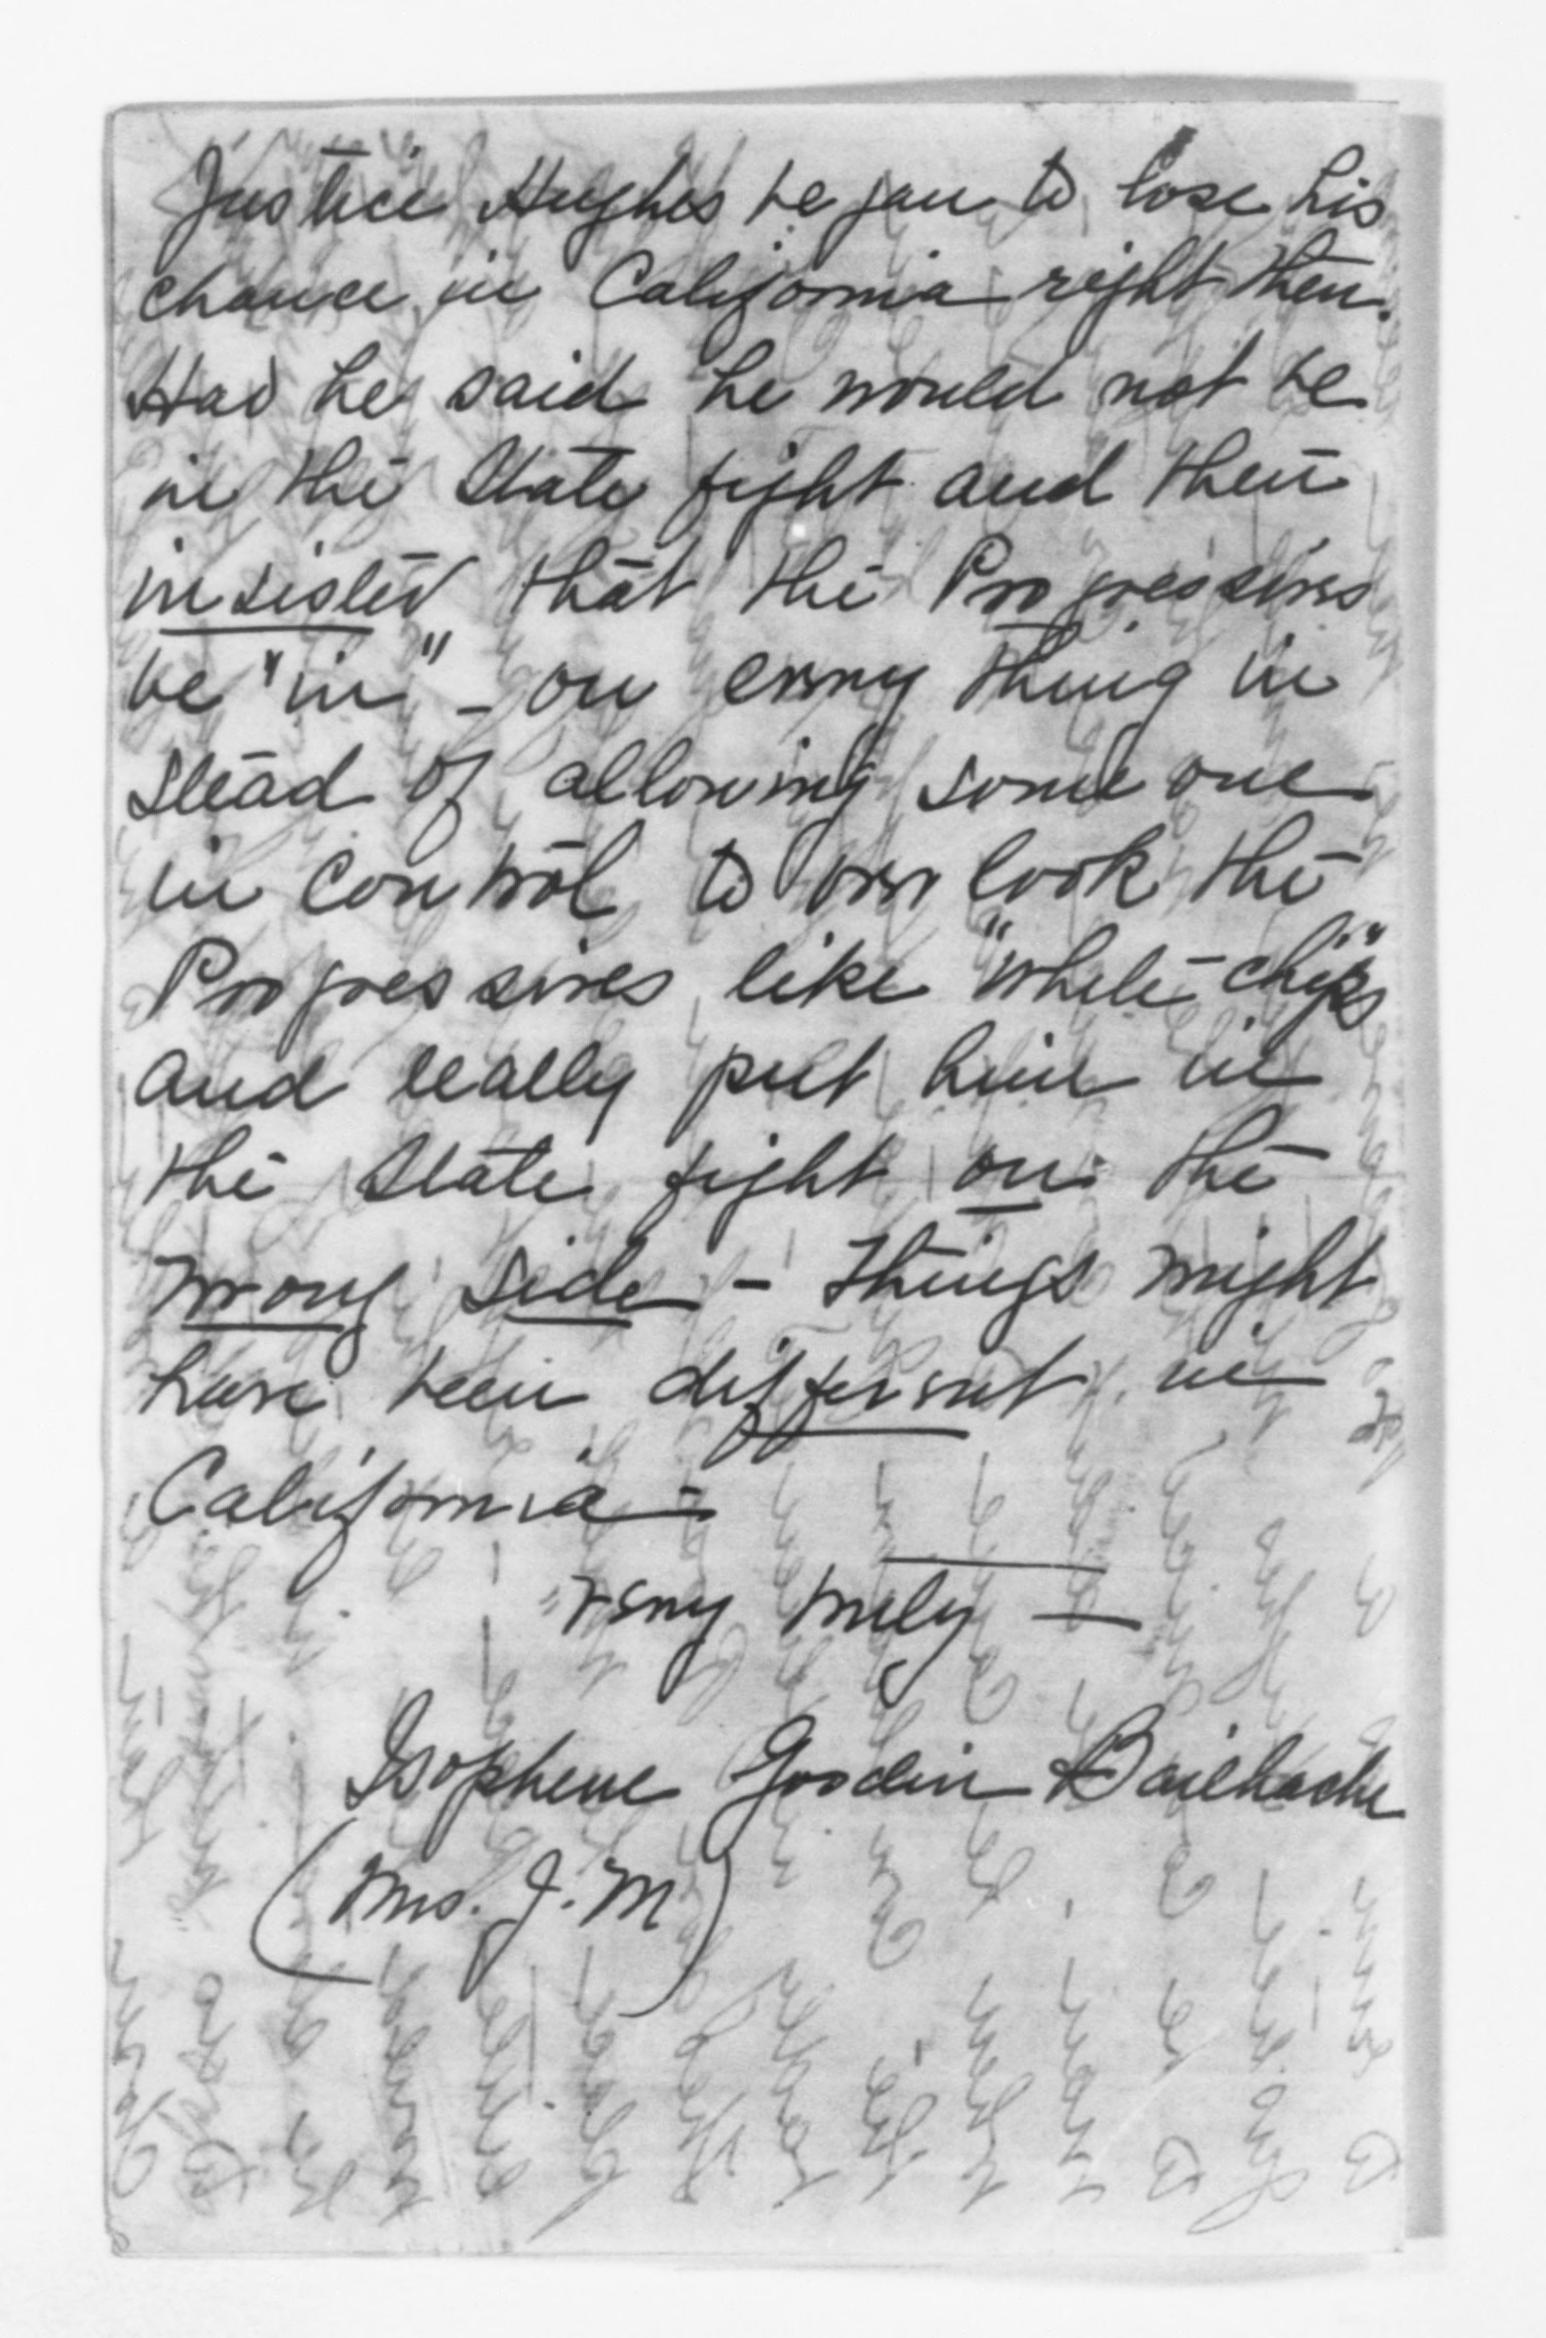 Justice Hughes began to lose his
chance in California right then.
Had he said he would not be
in the State fight and then
insisted that the Progressives
be "in" - on every thing in
stead of allowing some one
in control to over look the
Progressives like "white-chips"
and really put him in
the State fight on the
wrong side - things might
have been different in
California -
Very truly -
Isophene Goodin Bailhache
(Mrs. J. M)